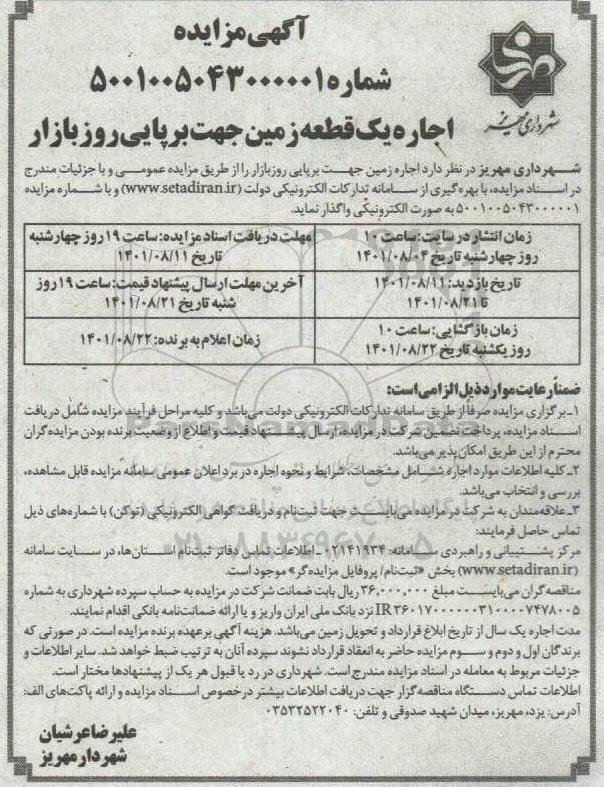 آگهی مزایده
شماره ۵۰۰۱۰۰۵۰۴۳۰۰۰۰۰۱
اجاره یک قطعه زمین جهت برپایی روز بازار
شهرداری مهریز
شهرداری مهریز در نظر دارد اجاره زمین جهت برپایی روزبازار را از طریق مزایده عمومی و با جزئیات مندرج
در اسناد مزایده، با بهره‌گیری از سامانه تدارکات الکترونیکی دولت (www.setadiran.ir) و با شماره مزایده
۵۰۰۱۰۰۵۰۴۳۰۰۰۰۰۱ به صورت الکترونیکی واگذار نماید.
زمان انتشار در سایت: ساعت ۱۰
روز چهارشنبه تاریخ ۱۴۰۱/۰۸/۰۴
مهلت دریافت اسناد مزایده: ساعت ۱۹ روز چهارشنبه
تاریخ ۱۴۰۱/۰۸/۱۱
تاریخ بازدید: ۱۴۰۱/۰۸/۱۱
تا ۱۴۰۱/۰۸/۲۱
آخرین مهلت ارسال پیشنهاد قیمت: ساعت ۱۹ روز
شنبه تاریخ ۱۴۰۱/۰۸/۲۱
زمان بازگشایی: ساعت ۱۰
روز یکشنبه تاریخ ۱۴۰۱/۰۸/۲۲
زمان اعلام به برنده: ۱۴۰۱/۰۸/۲۲
ضمناً رعایت موارد ذیل الزامی است:
۱- برگزاری مزایده صرفا از طریق سامانه تدارکات الکترونیکی دولت می‌باشد و کلیه مراحل فرآیند مزایده شامل دریافت
اسناد مزایده، پرداخت تضمین شرکت در مزایده، ارسال پیشنهاد قیمت و اطلاع از وضعیت برنده بودن مزایده‌گران
محترم از این طریق امکان‌پذیر می‌باشد.
۲- کلیه اطلاعات موارد اجاره شامل مشخصات، شرایط و نحوه اجاره در برد اعلان عمومی سامانه مزایده قابل مشاهده،
بررسی و انتخاب می‌باشد.
۳- علاقه‌مندان به شرکت در مزایده می‌بایست جهت ثبت‌نام و دریافت گواهی الکترونیکی (توکن) با شماره‌های ذیل
تماس حاصل فرمایند:
مرکز پشتیبانی و راهبردی سامانه: ۰۲۱۴۱۹۳۴ - اطلاعات تماس دفاتر ثبت‌نام استان‌ها، در سایت سامانه
(www.setadiran.ir) بخش «ثبت‌نام/ پروفایل مزایده‌گر» موجود است.
مناقصه‌گران می‌بایست مبلغ ۳۶,۰۰۰,۰۰۰ ریال بابت ضمانت شرکت در مزایده به حساب سپرده شهرداری به شماره
IR۳۶۰۱۷۰۰۰۰۰۰۳۱۰۰۰۰۷۴۷۸۰۰۵ نزد بانک ملی ایران واریز و یا ارائه ضمانت‌نامه بانکی اقدام نمایند.
مدت اجاره یک سال از تاریخ ابلاغ قرارداد و تحویل زمین می‌باشد. هزینه آگهی برعهده برنده مزایده است. در صورتی که
برندگان اول و دوم و سوم مزایده حاضر به انعقاد قرارداد نشوند سپرده آنان به ترتیب ضبط خواهد شد. سایر اطلاعات و
جزئیات مربوط به معامله در اسناد مزایده مندرج است. شهرداری در رد یا قبول هر یک از پیشنهادها مختار است.
اطلاعات تماس دستگاه مناقصه‌گزار جهت دریافت اطلاعات بیشتر درخصوص اسناد مزایده و ارائه پاکت‌های الف:
آدرس: یزد، مهریز، میدان شهید صدوقی و تلفن: ۰۳۵۳۲۵۲۲۰۴۰
علیرضا عرشیان
شهردار مهریز
۰۲۱-۸۸۳۴۹۶۷۰-۵